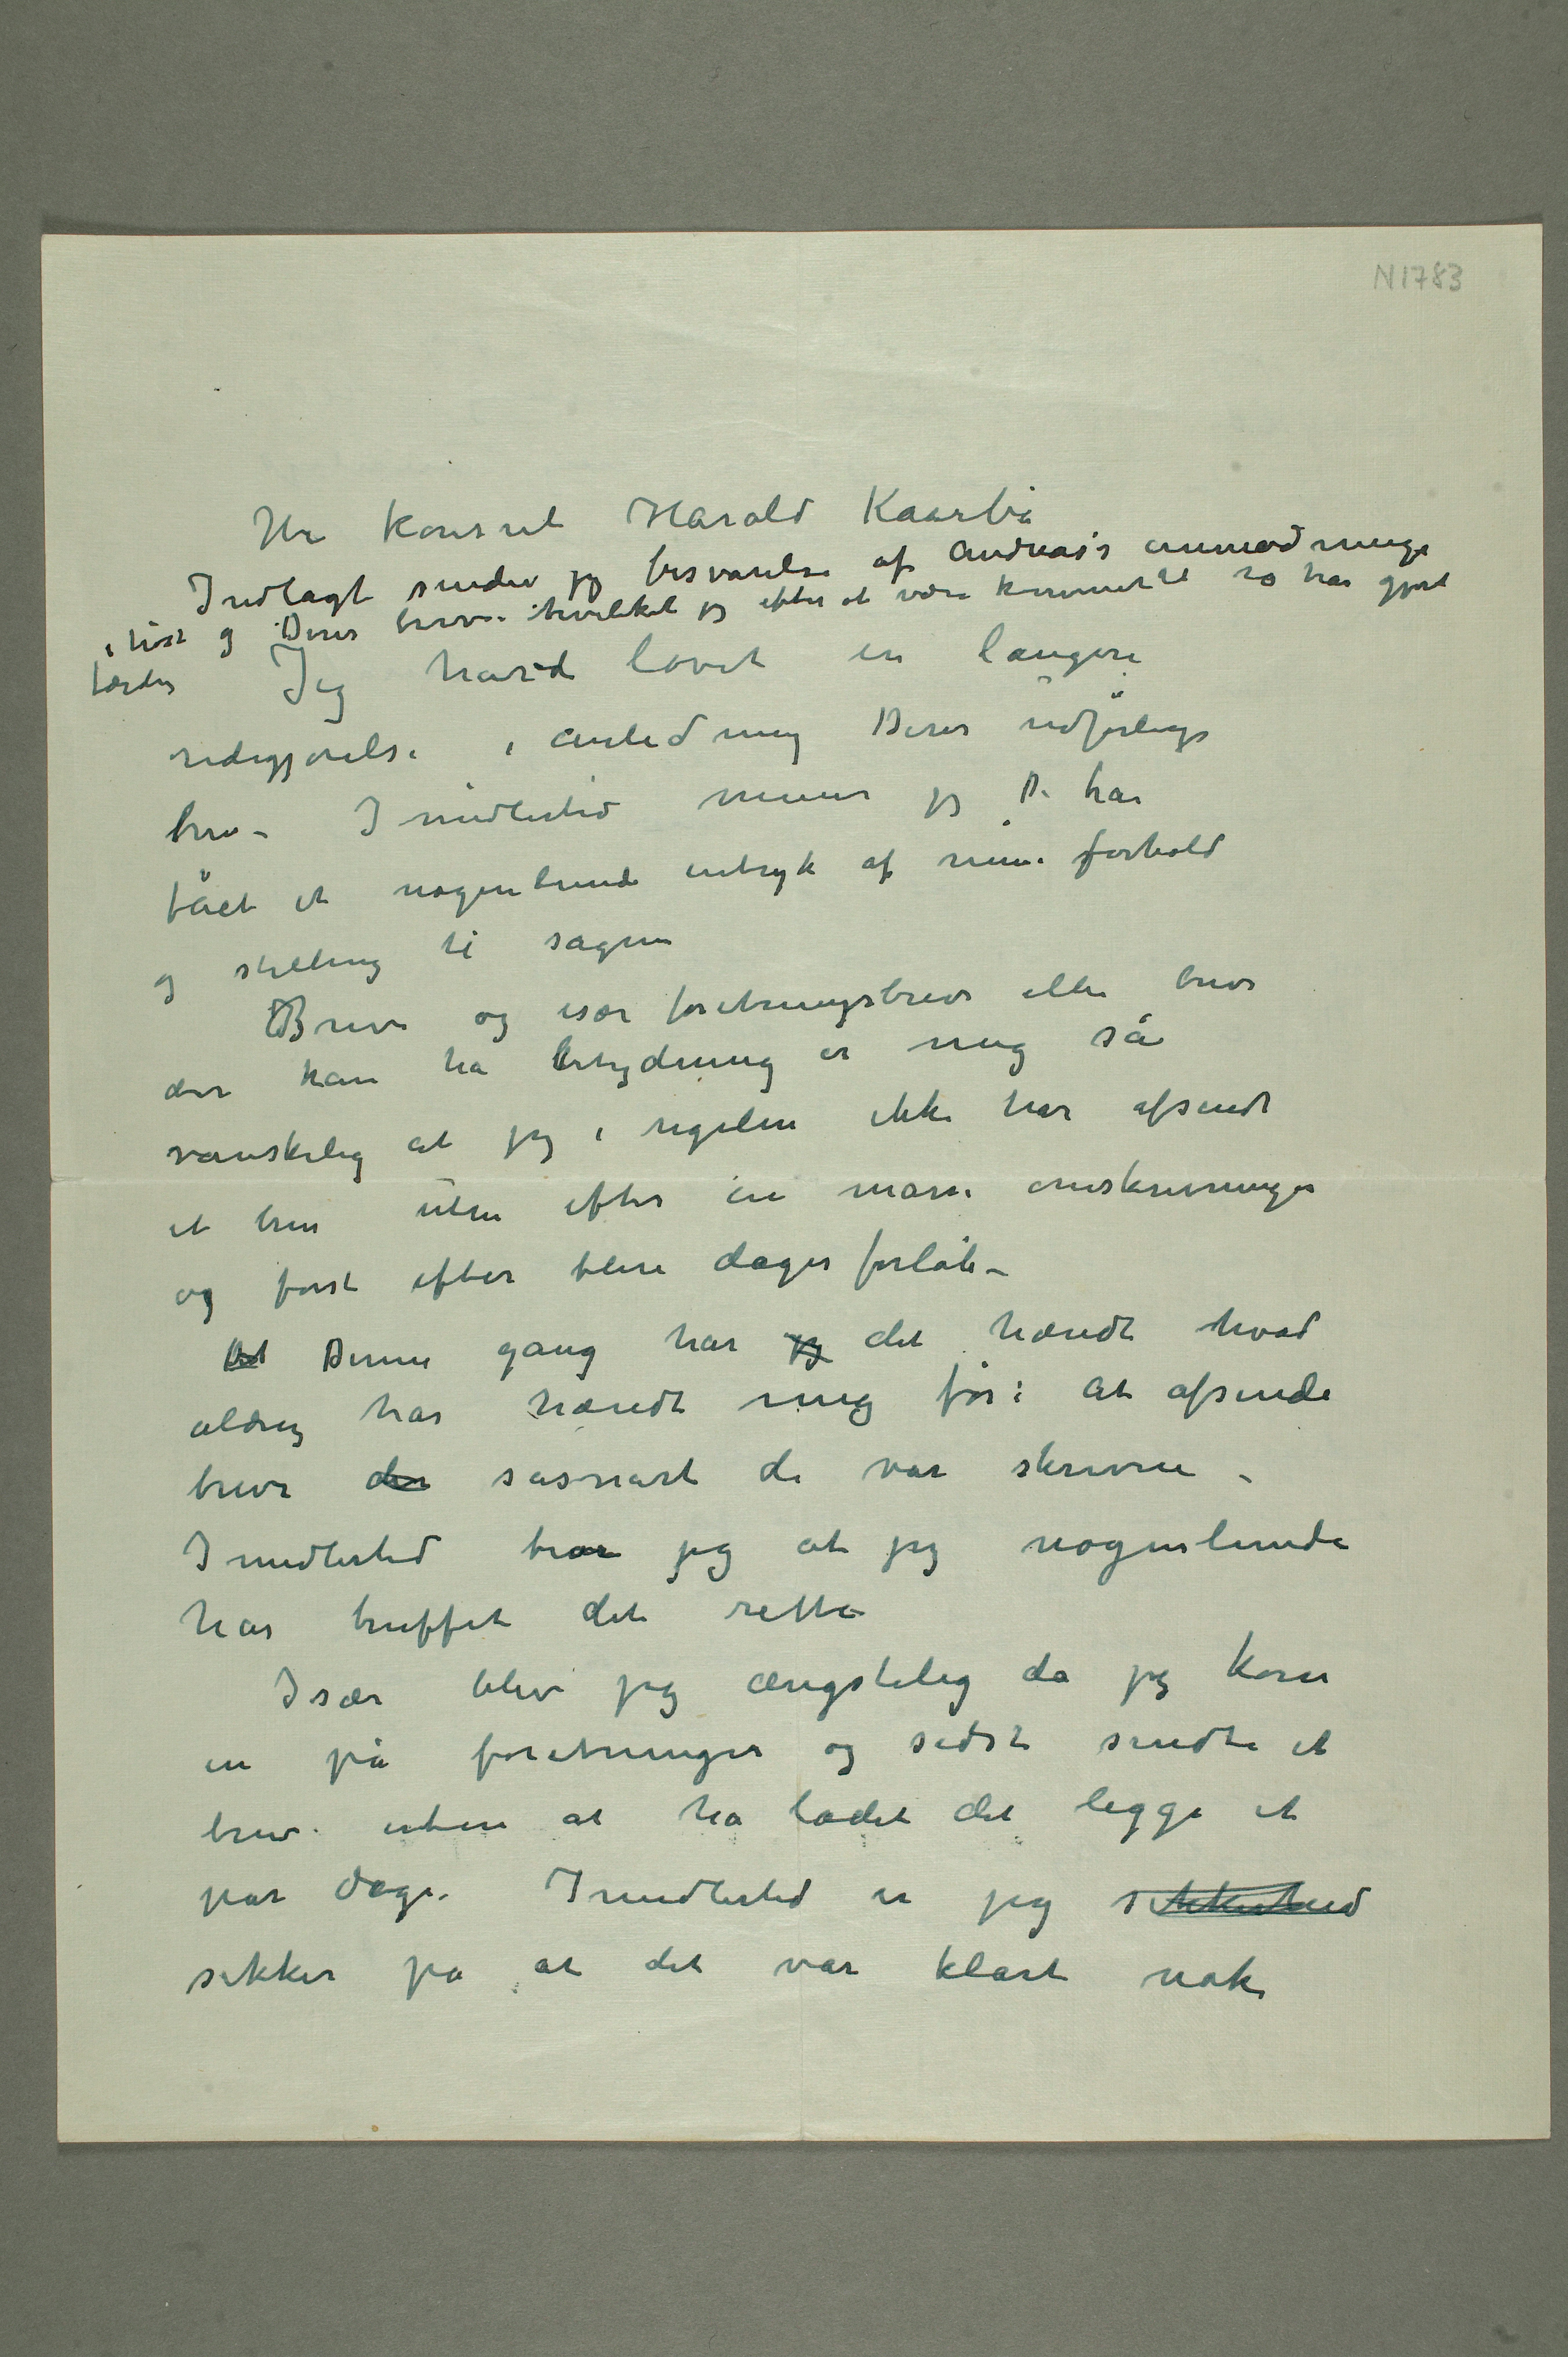 N 1783
Hr Konsul Harald Kaarbø
Indlagt sender jeg besvarelse af Andreas's anmodninge
i høst og Deres brev. hvilket jeg efter at være kommet til ro har gjort
færdig Jeg havde lovet en længere
redegjørelse i anledning Deres udførlige
brev – Imidlertid mener jeg De har
fået et nogenlunde intryk af mine forhold
og stilling til sagen
Breve og især foretningsbreve eller breve
der kan ha betydning er mig så
vanskelig at jeg i regelen ikke har afsendt
et brev uten efter en masse omskrivninger
og først efter flere dages forløb –
Det Denne gang har jeg det hændt hvad
aldrig har hændt mig før: at afsende
breve der såsnart de var skrevne –
Imidlertid tror jeg at jeg nogenlunde
har truffet det rette
Især blev jeg ængstelig da jeg kom
in på foretninger og sidst sendte et
brev uten at ha ladet det ligge et
par dage. Imidlertid er jeg
sikker på at det var klart nok